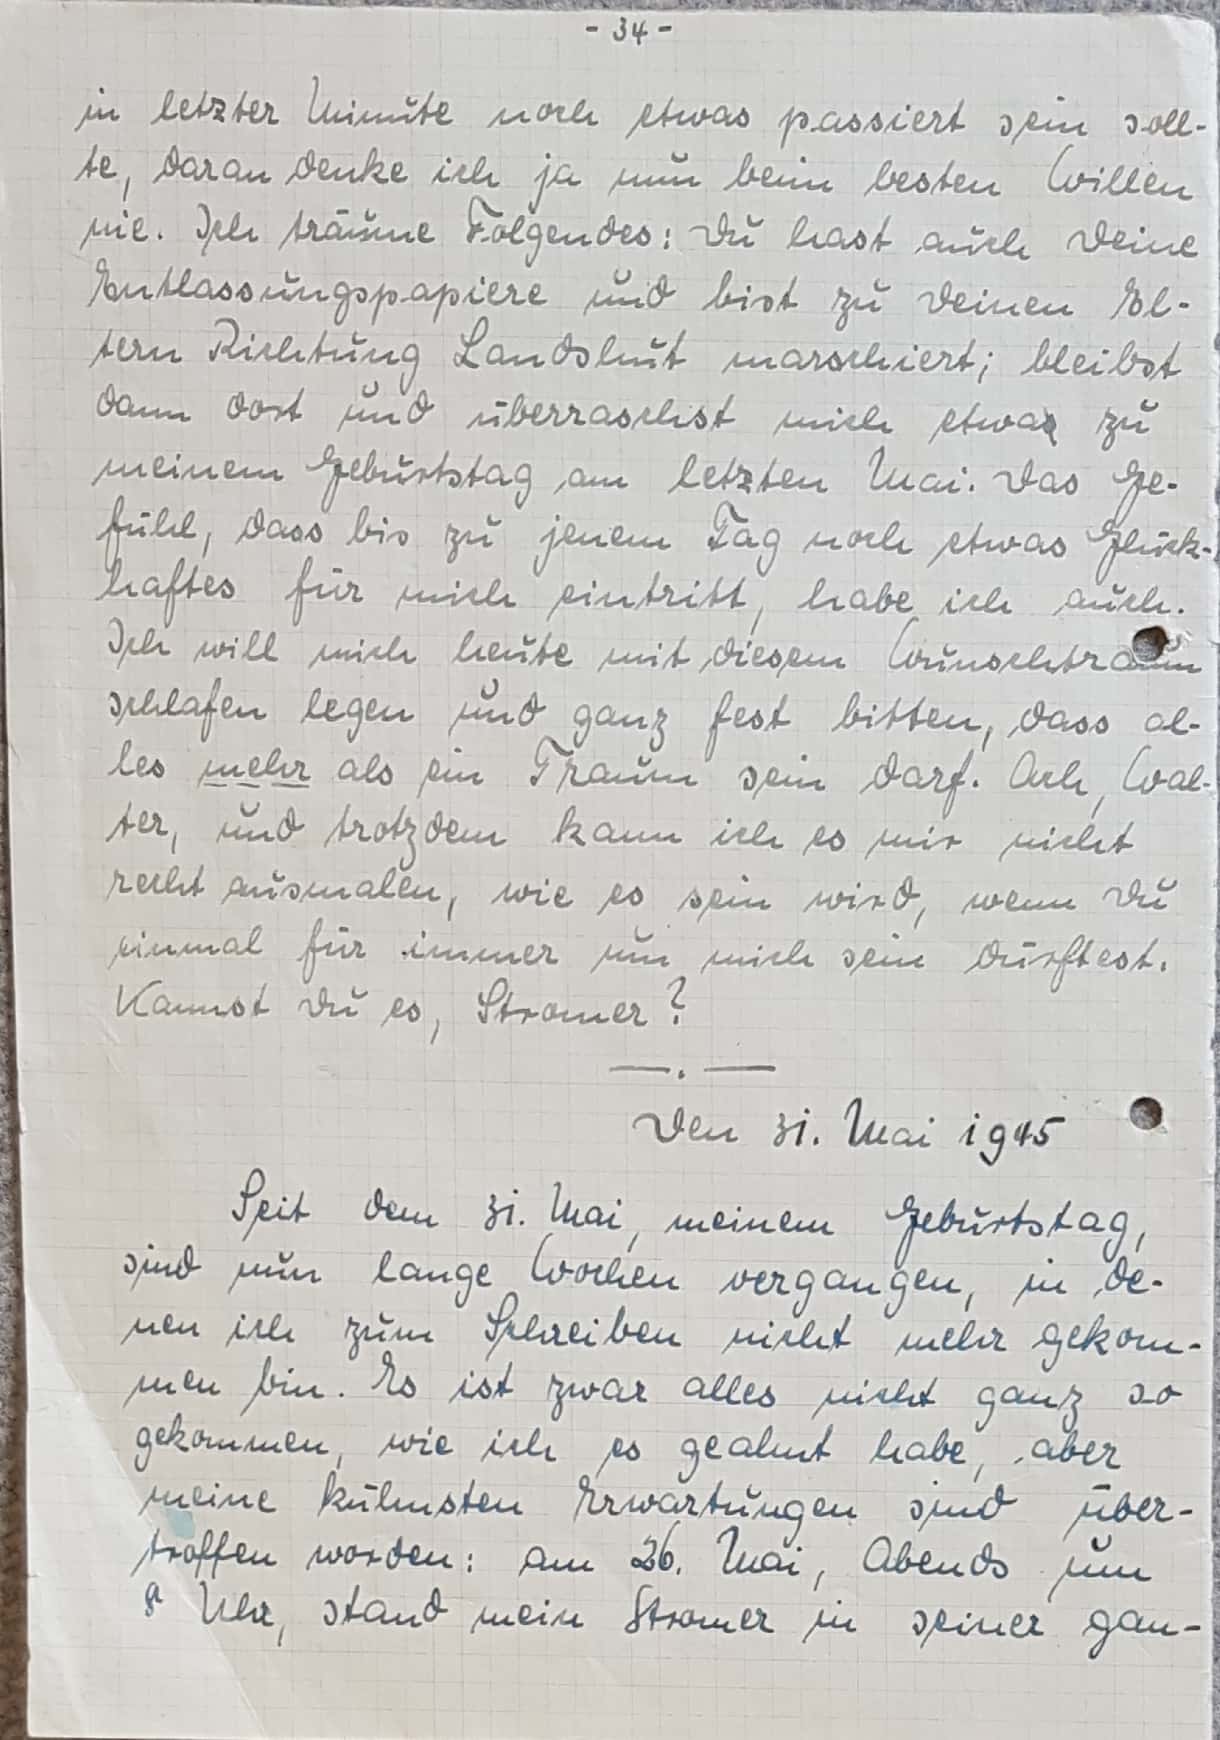 - 34 -
in letzter Minute noch etwas passiert sein soll-
te, daran denke ich ja nun beim besten Willen
nie. Ich träume Folgendes: Du hast auch Deine
Entlassungspapiere und bist zu Deinen El-
tern Richtung Landshut marschiert; bleibst
dann dort und überraschst mich etwa zu
meinem Geburtstag am letzten Mai. Das Ge-
fühl, dass bis zu jenem Tag noch etwas Glück-
haftes für mich eintritt, habe ich auch.
Ich will mich heute mit diesem Wunschtraum
schlafen legen und ganz fest bitten, dass al-
les mehr als ein Traum sein darf. Ach, Wal-
ter, und trotzdem kann ich es mir nicht
recht ausmalen, wie es sein wird, wenn Du
einmal für immer um mich sein dürftest.
Kannst Du es, Stromer?
—.—
Den 31. Mai 1945
Seit dem 31. Mai, meinem Geburtstag,
sind nun lange Wochen vergangen, in de-
nen ich zum Schreiben nicht mehr gekom-
men bin. Es ist zwar alles nicht ganz so
gekommen, wie ich es geahnt habe, aber
meine kühnsten Erwartungen sind über-
troffen worden: am 26. Mai, Abends um
8 Uhr, stand mein Stromer in seiner gan-